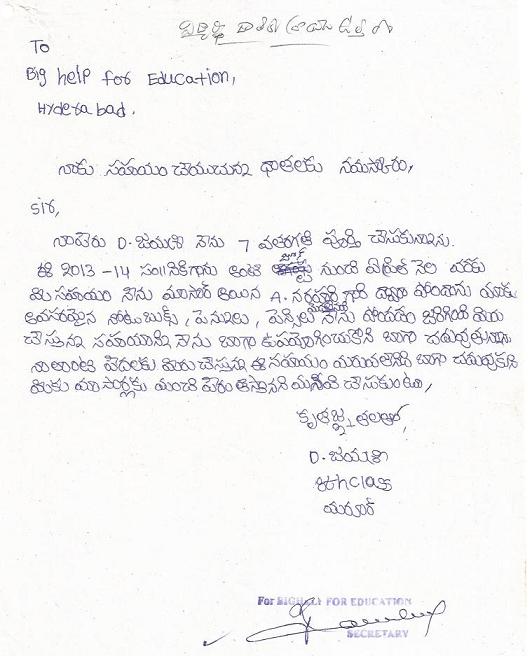 విద్యార్థి దాతకు వ్రాయు ఉత్తరం
To
Big help for Education,
Hyderabad.
నాకు సహాయం చేయుచున్న దాతలకు నమస్కారం,
sir,
నాపేరు D. జయశ్రీ నేను 7 వతరగతి పూర్తి చేసుకున్నాను.
ఈ 2013-14 సం॥నికిగాను అంటే జూన్ నుండి ఏప్రిల్ నెల వరకు
మీ సహాయం నేను మాసార్ అయిన A. గారి ద్వారా పొందాను మాకు
అవసరమైన నోటుబుక్స్, పెన్నులు, పెన్సిల్ నేను పొందడం జరిగింది మీరు
చేస్తున్న సహాయాన్ని నేను బాగా ఉపయోగించుకొని బాగా చదువుతున్నాను
నాలాంటి పేదలకు మీరు చేస్తున్న ఈ సహాయం మరువలేనిది బాగా చదువుకొని
మీకు మా సార్లకు మంచి పేరు తెస్తానని మనవి చేసుకుంటూ,
కృతజ్ఞతలతో,
D. జయశ్రీ
8th class
For BIGHELP FOR EDUCATION
SECRETARY